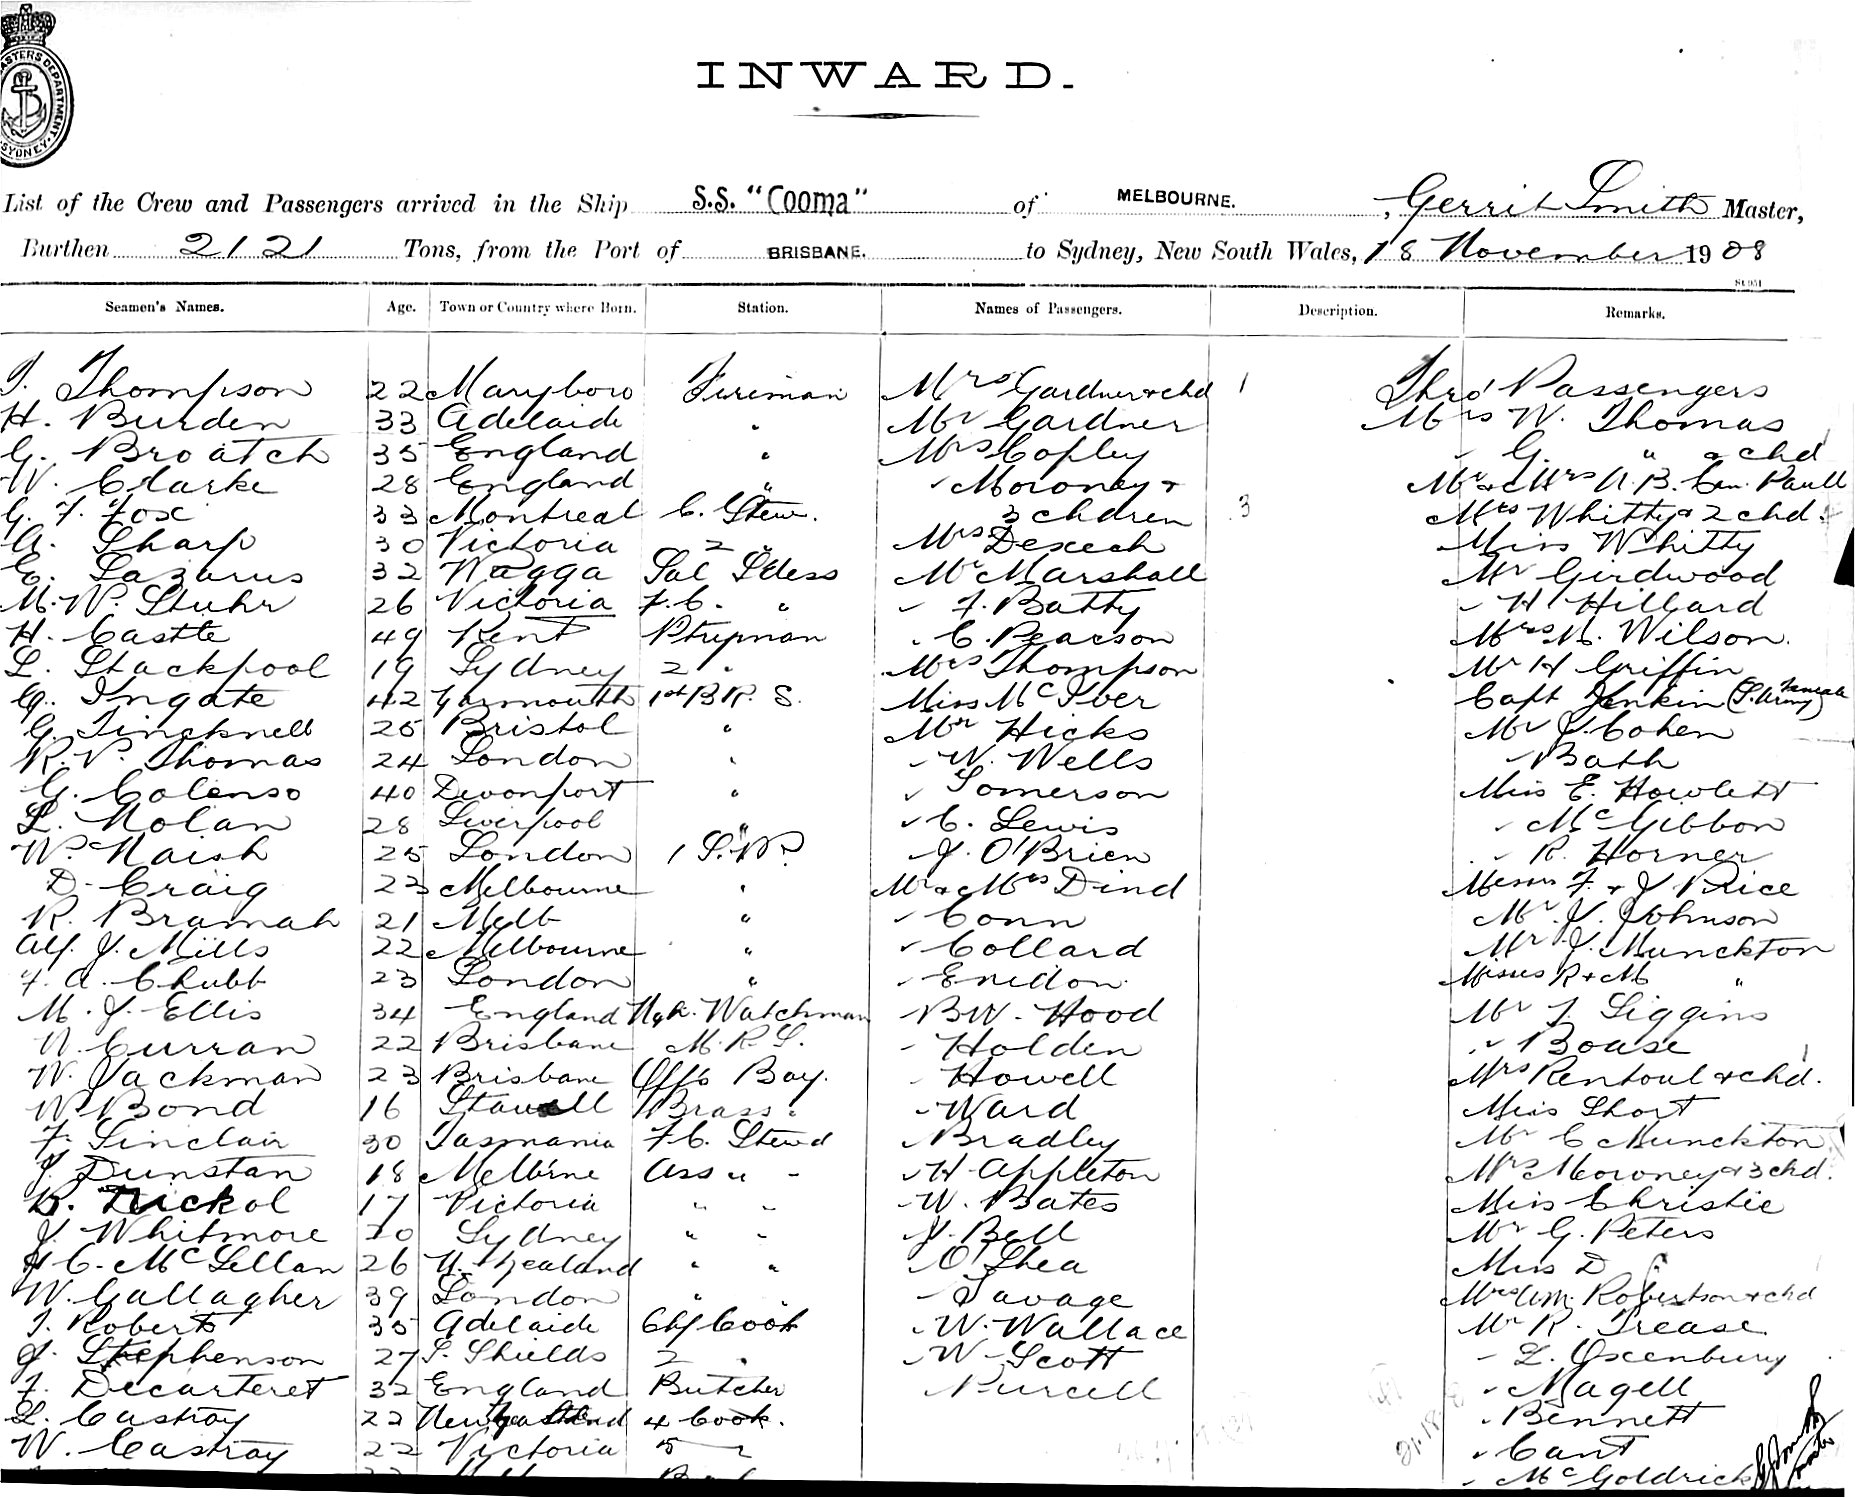 MASTERS DEPARTMENT
SYDNEY
INWARD.
List of the Crew and Passengers arrived in the Ship S.S. "Cooma" of MELBOURNE. , Gerrit Smith Master,
Burthen 2121 Tons, from the Port of BRISBANE. to Sydney, New South Wales, 18 November 1908
Seamen's Names. Age. Town or Country where Born. Station. Names of Passengers. Description. Remarks.
T. Thompson 22 Maryboro Fireman Mrs Gardner & chd 1 Thro' Passengers
H. Burden 33 Adelaide " Mr Gardner Mrs W. Thomas
G. Broatch 35 England " Mrs Copley " G. " & chd
W. Clarke 28 England " " Moroney & Mr & Mrs A. B. Paull
G. F. Fox 33 Montreal C. Stew. 3 chdren 3 Mrs Whitty & 2 chd.
A. Sharp 30 Victoria 2 " Mrs Dexech Miss Whitty
E. Lazarus 32 Wagga Sal S'dess Mr Marshall Mr Girdwood
M. W. Stuhr 26 Victoria F.C. " " F. Batty " H Hillard
H. Castle 49 Kent Ptryman " C. Pearson Mrs M. Wilson.
L. Stackpool 19 Sydney 2 " Mrs Thompson Mr H Griffin
G. Ingate 42 Yarmouth 1st B.R.S. Miss McIver Capt Jenkin (S. Army)
G. Tincknell 25 Bristol " Mr Hicks Mr J. Cohen
R. P. Thomas 24 London " " W. Wells " Bath
G. Colenso 40 Devonport " " Somerson Miss E. Howlett
L. Nolan 28 Liverpool " " C. Lewis " McGibbon
W. Naish 25 London 1 S.W.P. " J. O'Brien " R. Horner
D. Craig 23 Melbourne " Mr & Mrs Dind Messrs F. & J Price
R. Bramah 21 Melb " " Conn Mr. J. Johnson
Alf. J. Mills 22 Melbourne " " Collard Mr J. Munckton
F. A. Chubb 23 London " " Enidon Misses R & M "
M. J. Ellis 34 England Ngt. Watchman " B W. Hood Mr T. Liggins
W. Curran 22 Brisbane M.R.S. " Holden " Bouse
W. Jackman 23 Brisbane Off's Boy. " Howell Mrs Rentoul & chd. 1
W. Bond 16 Stawell Brass " " Ward Miss Short
F. Sinclair 30 Tasmania F.C. Stewd " Bradley Mr C Munckton
J. Dunstan 18 Melbrne Ass " " " H. Appleton Mrs Moroney & 3 chd.
B. Nickol 17 Victoria " " " W. Bates Miss Christie
J. Whitmore 20 Sydney " " " J. Bell Mr G. Peters
J C. McLellan 26 N. Zealand " " " O'Shea Miss D
W. Gallagher 39 London " " " Savage Mrs Robertson & chd
T. Roberts 35 Adelaide Chf Cook " W. Wallace Mr R. Trease
J. Stephenson 27 S. Shields 2 " " W Scott " L. Oxenbury
F. Decarteret 32 England Butcher " Purcell " Magell
L. Castray 22 4 Cook. " Bennett
W. Castray 22 Victoria 5 " " Cant
" McGoldrick